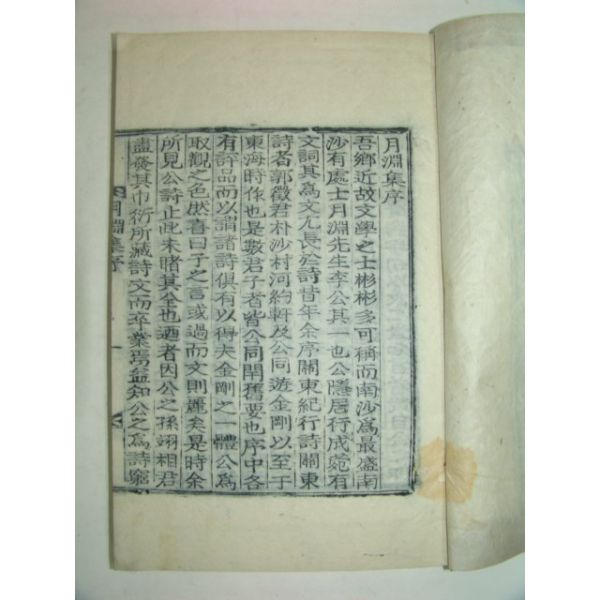 月淵集序
吾鄉近故文學之士彬彬多可稱而南沙爲最盛南
沙有處士月淵先生李公其一也公隱居行成菀有
文詞其爲文尤長於詩昔年余序關東紀行詩關東
詩者郭徵君朴沙村河約軒及公同遊金剛以至于
東海時作也是數君子者皆公同閈舊要也序中各
有評品而以謂諸詩俱有以得夫金剛之一體公爲
取觀之色然書曰子之言或過而文則麗矣是時余
所見公詩止此未睹其全也迺者因公之孫翊相君
盡發其巾衍所藏詩文而卒業焉益知公之爲詩窮
月淵集序
一